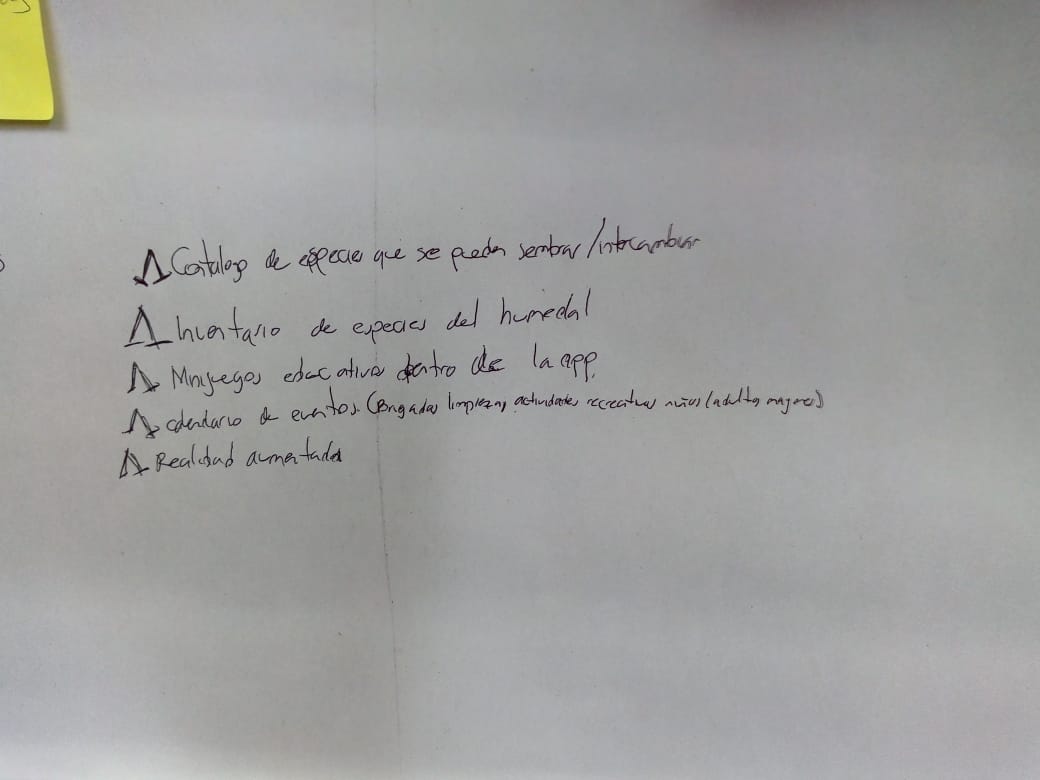 Catalogo de especies que se pueden sembrar/intercambiar
Inventario de especies del humedal
Minijuegos educativos dentro de la app.
calendario de eventos. (Brigadas limpieza, actividades recreativas niños (adultos mayores)
Realidad aumentada